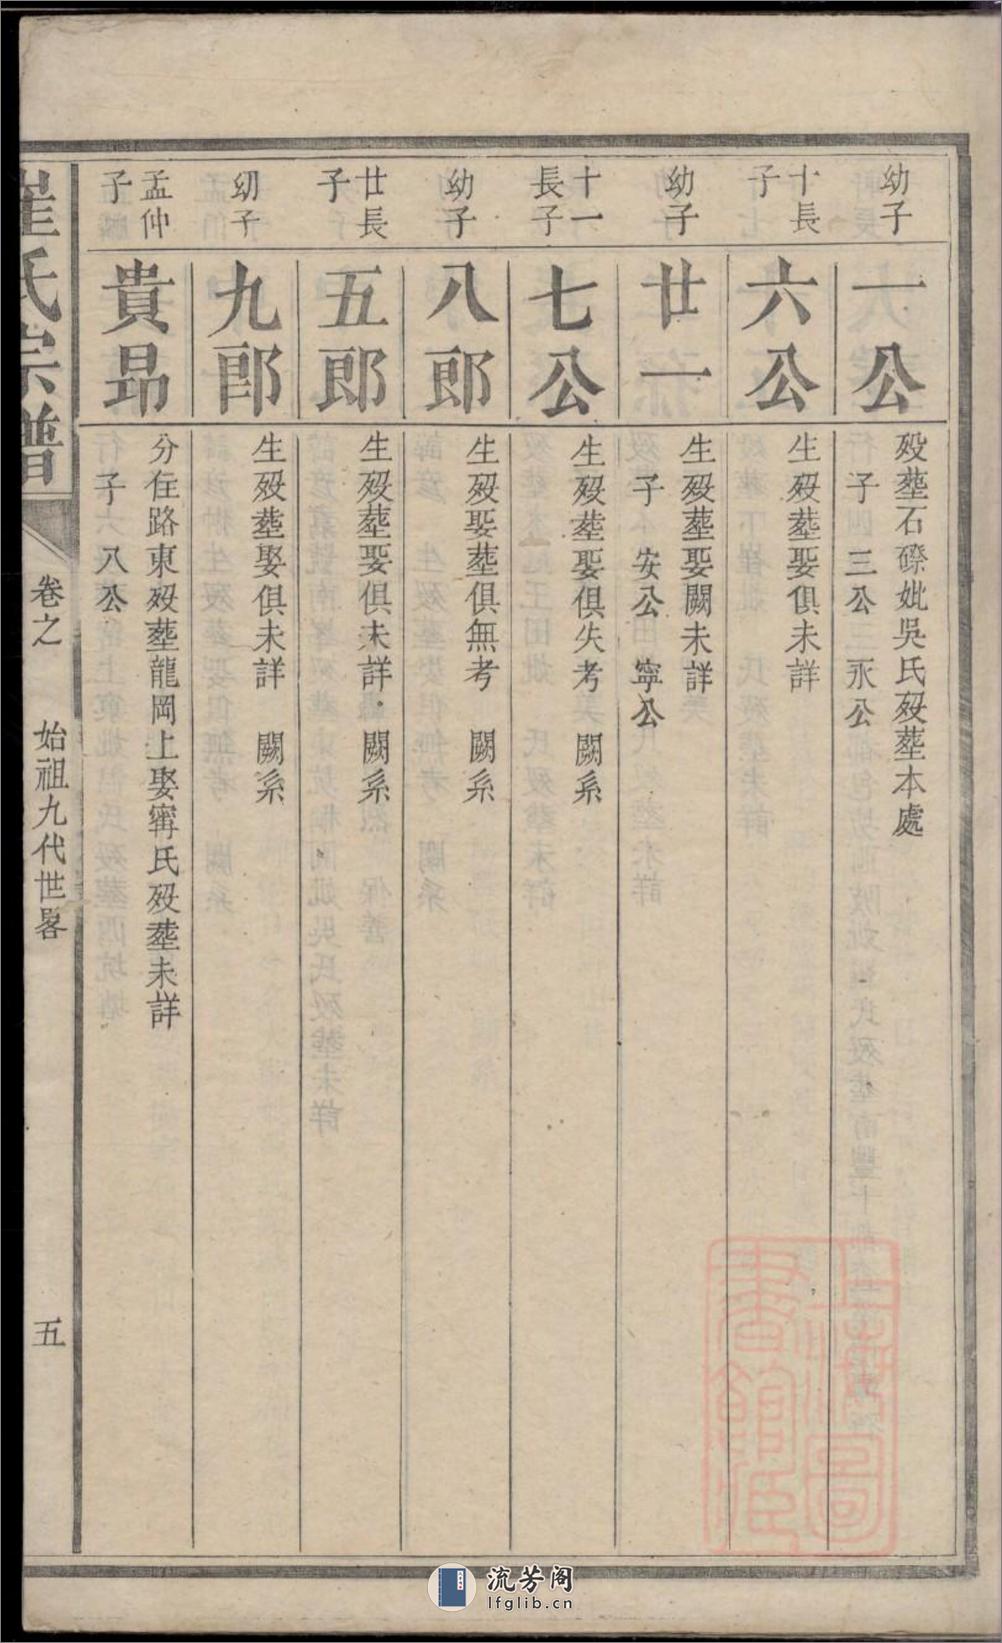 幼子
一公
殁塟石磜妣吳氏殁塟本處
子 三公 永公
十長子
六公
生殁塟娶俱未詳
幼子
廿一
生殁塟娶闕未詳
子 安公 寧公
十一長子
七公
生殁塟娶俱失考 闕系
幼子
八郎
生殁娶塟俱無考 闕系
廿長子
五郎
生殁塟娶俱未詳 闕系
幼子
九郎
生殁塟娶俱未詳 闕系
孟仲子
貴昂
分住路東殁塟龍岡上娶甯氏殁塟未詳
子 八公
崔氏宗譜
卷之 始祖九代世畧
五
上海圖書館藏
流芳阁
lfglib.cn